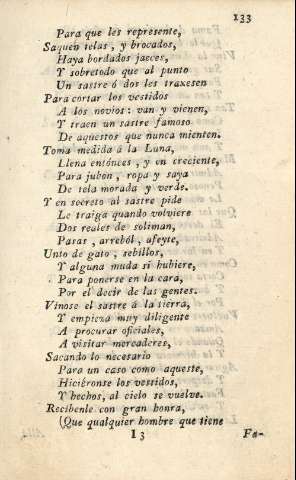 133
Para que les represente,
Saquen telas, y brocados,
Haya bordados jaeces,
Y sobretodo que al punto
Un sastre ó dos les traxesen
Para cortar los vestidos
A los novios: van y vienen,
Y traen un sastre famoso
De aquestos que nunca mienten.
Toma medida á la Luna,
Llena entónces, y en creciente,
Para jubon, ropa y saya
De tela morada y verde.
Y en secreto al sastre pide
Le traiga quando volviere
Dos reales de soliman,
Pasas, arreból, afeyte,
Unto de gato, sebillos,
Y alguna muda si hubiere,
Para ponerse en la cara,
Por el decir de las gentes.
Vinose el sastre á la tierra,
Y empieza muy diligente
A procurar oficiales,
A visitar mercaderes,
Sacando lo necesario
Para un caso como aqueste,
Hiciéronse los vestidos,
Y hechos, al cielo se vuelve.
Recibenle con gran honra,
(Que qualquier hombre que tiene
I3 Fa-